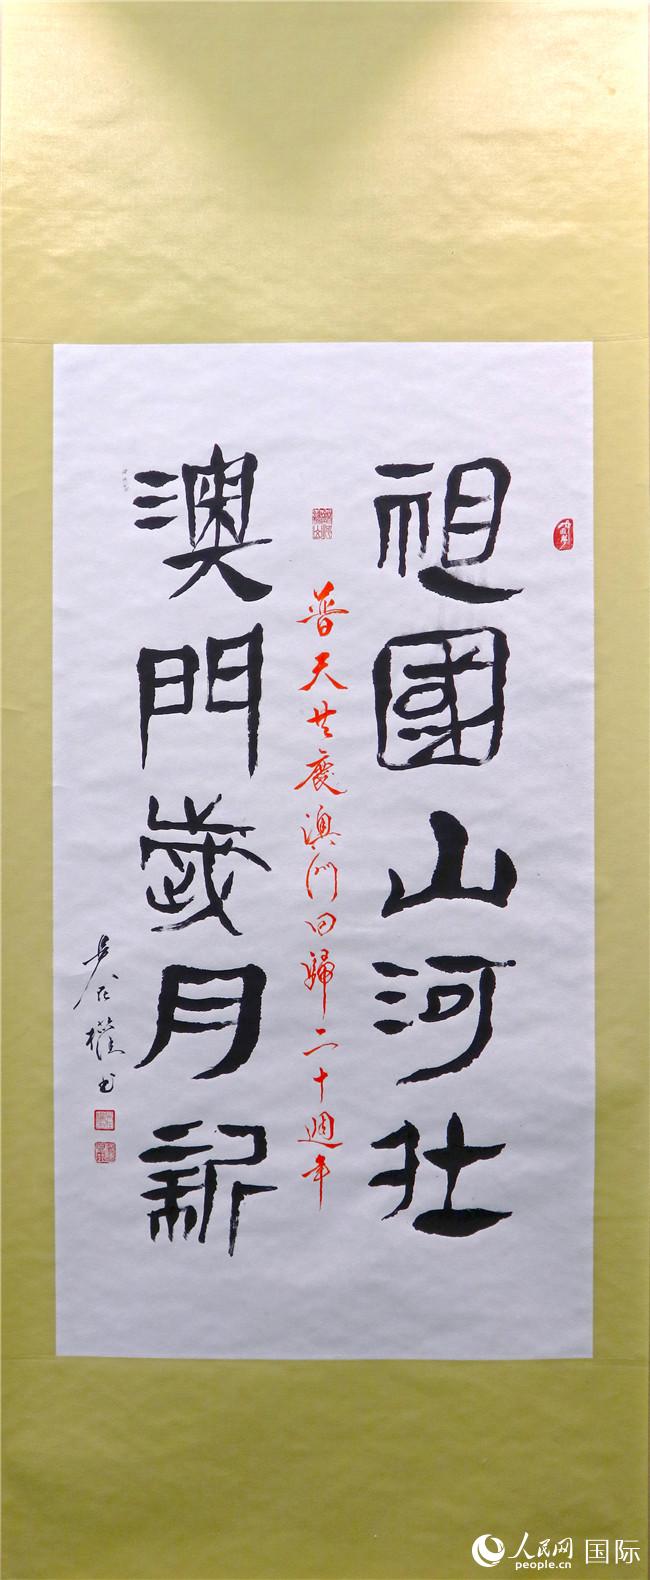 祖國山河壮
普天共慶澳门回歸二十週年
澳門歲月新
人民网 国际
people.cn